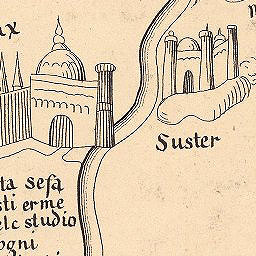 Suster
ta sesa
sti erme
elc studio
ogni